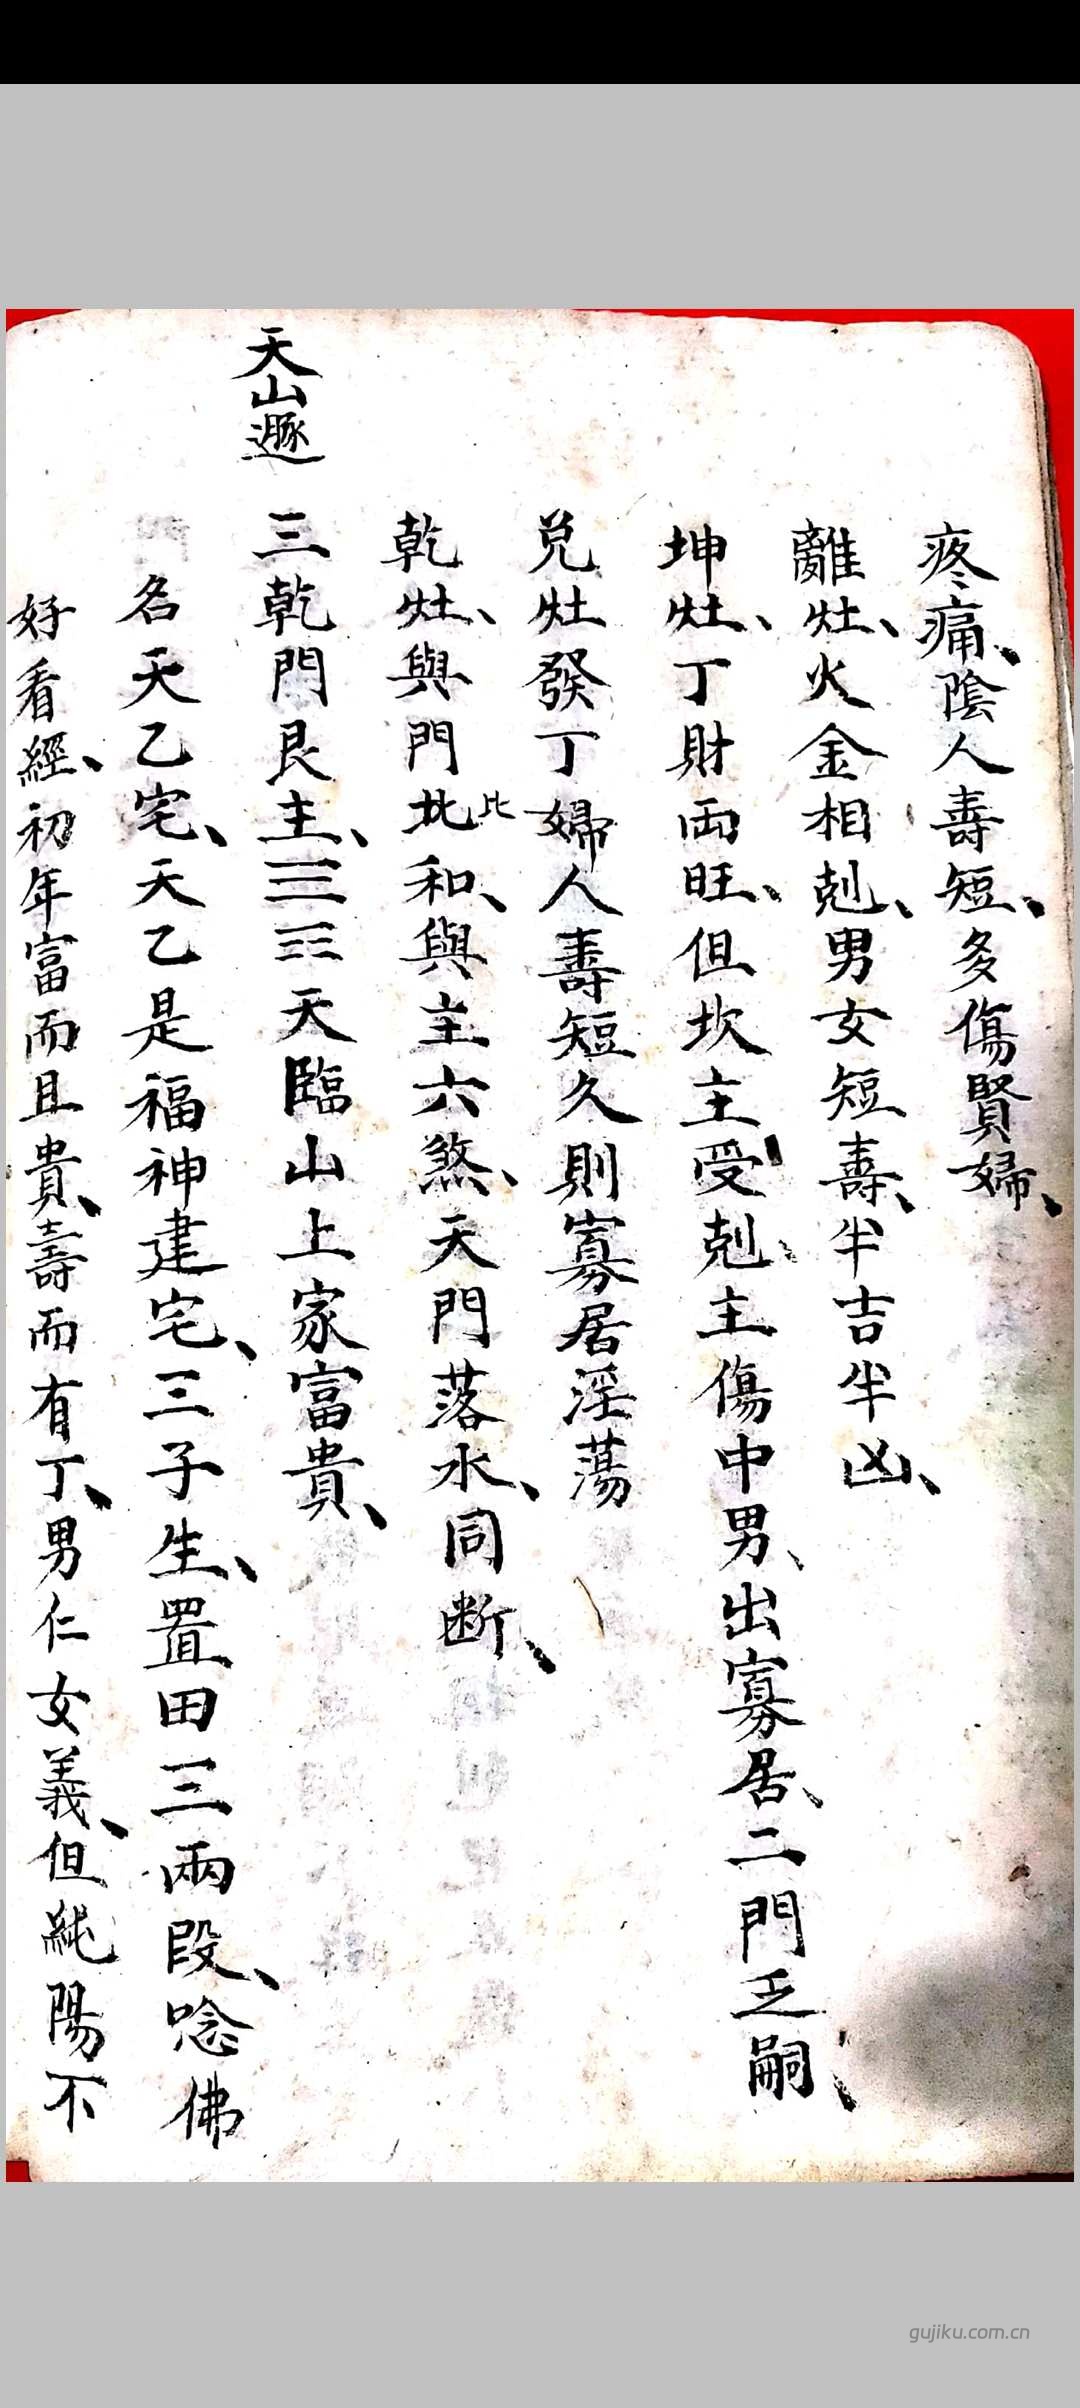 疼痛、陰人壽短、多傷賢婦、
離灶、火金相剋、男女短壽、半吉半凶、
坤灶、丁財両旺、但坎主受剋、主傷中男、出寡居、二門乏嗣、
兌灶發丁婦人壽短久則寡居淫蕩
乾灶、與門北比和、與主六煞、天門落水、同断、
天山遯
三乾門艮主、☰☶天臨山上家富貴、
名天乙宅、天乙是福神建宅、三子生、置田三兩段、唸佛
好看經、初年富而且貴、壽而有丁、男仁女義、但純陽不
gujiku.com.cn